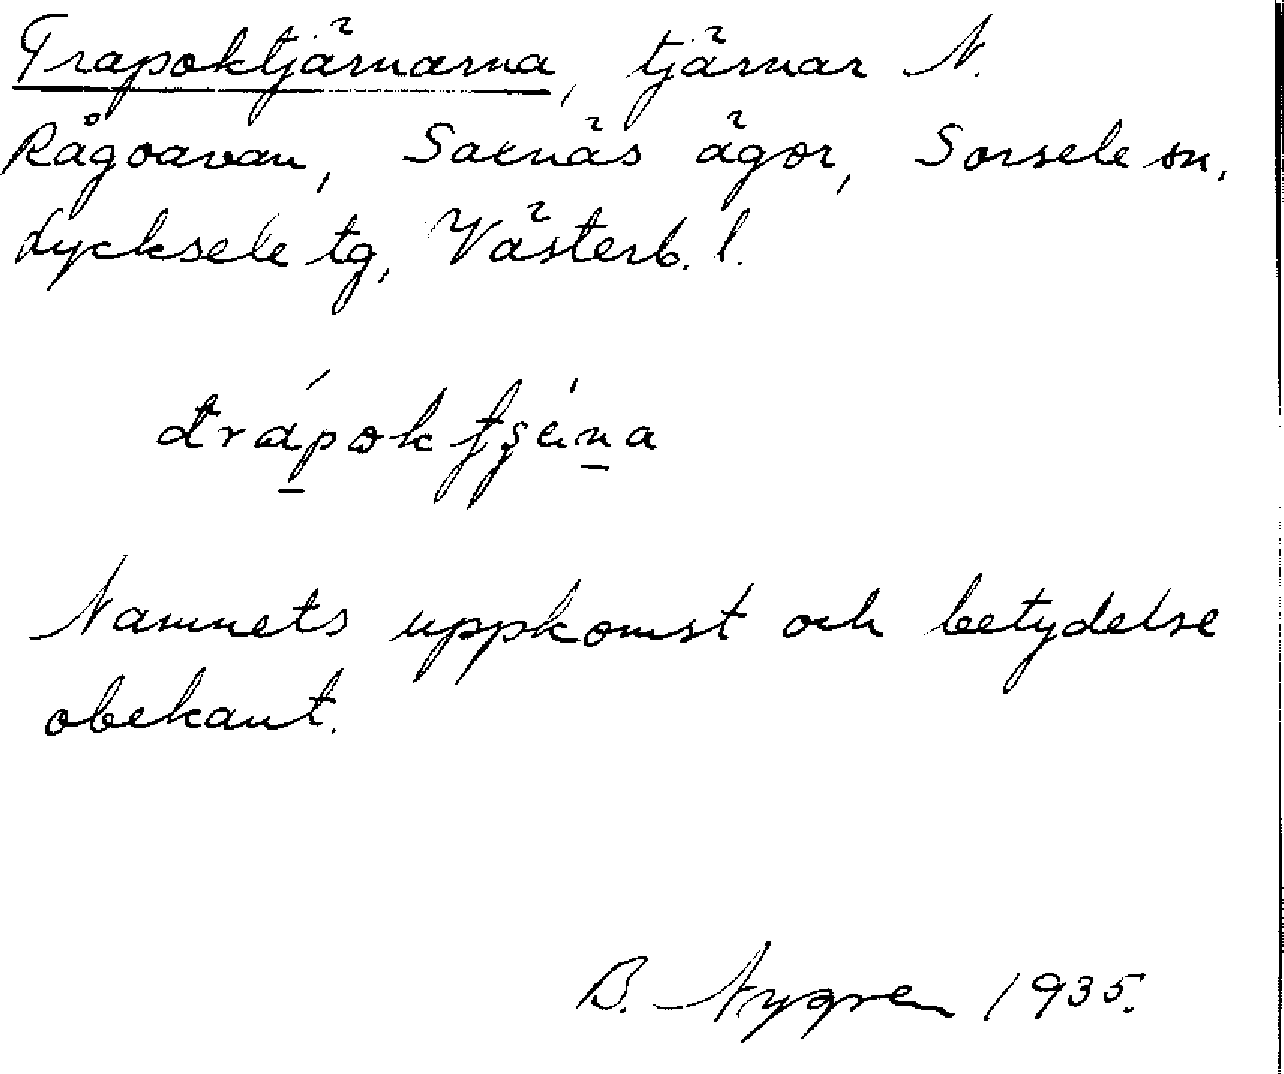 Trapoktjärnarna, tjärnar N.
Rågoavan, Saxnäs ägor, Sorsele sn.
Lycksele tg, Västerb. l.
Namnets uppkomst och betydelse
obekant.
B. Nygren 1935.